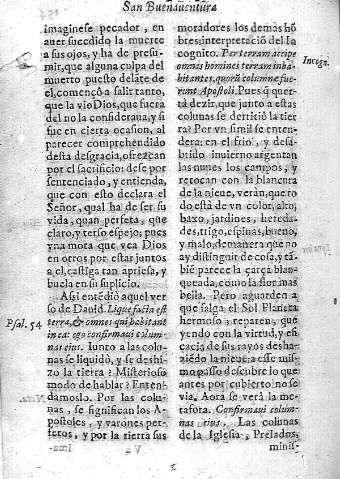 San Buenauentura
imaginese pecador, en
auer sucedido la muerte
a sus ojos, y ha de presu-
mir, que alguna culpa del
muerto puesto delãte de
el, començò a salir tanto,
que la vio Dios, que fuera
del no la considerana, y si
fue en cierta ocasion, al
parecer comprehendido
desta desgracia, ofrezcan
por el sacrificio: dese por
sentenciado, y entienda,
que con esto declara el
Señor, qual ha de ser su
vida, quan perfeta, que
claro, y terso espejo, pues
vna mota que vea Dios
en otros por estar juntos
a el, castiga tan apriesa, y
bucla en su suplicio.
Assi entẽdiò aquel ver
so de Dauid. Liquefacta est
terra, & omnes qui habitant
in ea: ego confirmaui colum-
nas eius. Iunto a las colu-
nas se liquidò, y se deshi-
zo la tierra? Misterioso
modo de hablar? Enten-
damoslo. Por las colu-
nas, se significan los A-
postoles, y varones per-
fetos, y por la tierra sus
Psal. 54
moradores los demas hõ
bres, interpretaciõ del In
cognito. Per terram accipe
omnes homines terram inha-
bitantes, quorũ columnæ fue-
runt Apostoli. Pues q̃ quer-
tà dezir, que junto a estas
colunas se derritiò la tier
ra? Por vn simil se enten-
dera: en el frio, y desa-
brido inuierno argentan
las nunes los campos, y
retocan con la blancura
de la nieue, verán, que to
do està de vn color, alto,
baxo, jardines, hereda-
des, trigo, espinas, bueno,
y malo, demanera que no
ay distinguir de cosa, y tã-
biẽ parece la çarça blan-
queada, como la flor mas
bella. Pero aguarden a
que salga el Sol Planeta
hermoso; reparen, que
yendo con la virtud, y efi-
cacia de sus rayos desha-
ziẽdo la nieue: a esse mis-
mo passo descubre lo que
antes por cubierto no se
via. Aora se verà la me-
tafora. Confirmaui colum-
nas eius. Las colunas
de la Iglesia, Prelados,
minis-
Incogn.